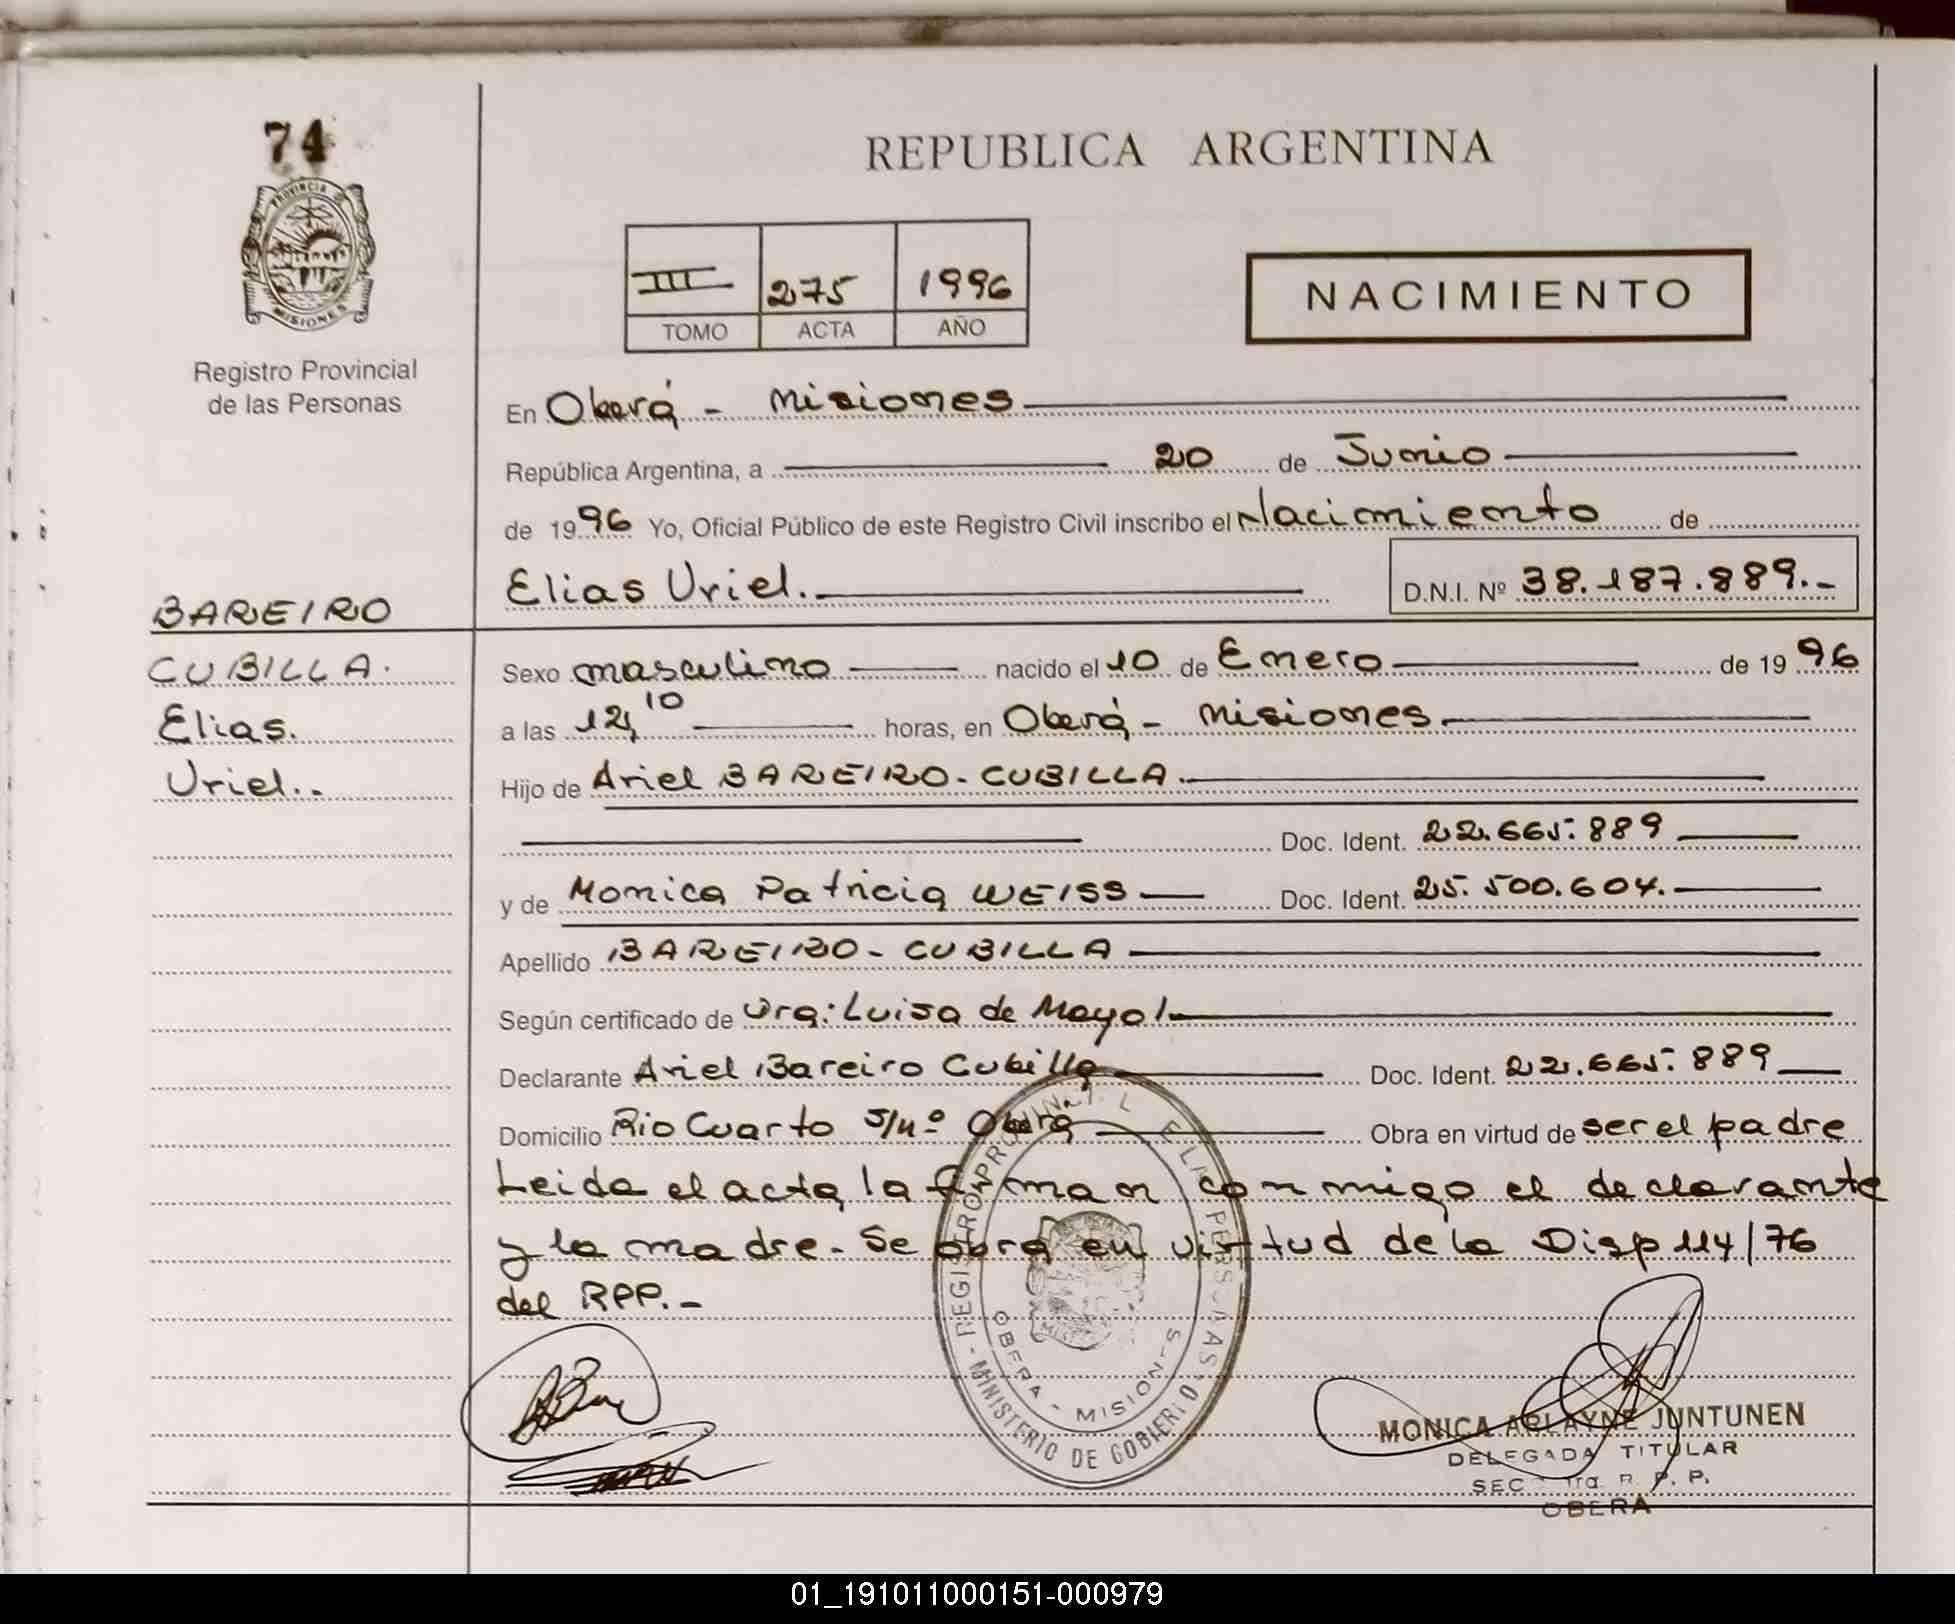 74
PROVINCIA
MISIONES
Registro Provincial
de las Personas
REPUBLICA ARGENTINA
III 275 1996
TOMO ACTA AÑO
NACIMIENTO
En Oberá - Misiones
República Argentina, a 20 de Junio
de 1996 Yo, Oficial Público de este Registro Civil inscribo el Nacimiento de
Elias Uriel. D.N.I. Nº 38.187.889.-
BAREIRO
CUBILLA.
Elias.
Uriel..
Sexo masculino nacido el 10 de Enero de 1996
a las 12,10 horas, en Oberá - Misiones.
Hijo de Ariel BAREIRO-CUBILLA.
Doc. Ident. 22.665.889
y de Monica Patricia WEISS Doc. Ident. 25.500.604.
Apellido BAREIRO-CUBILLA
Según certificado de Dra: Luisa de Mayol.
Declarante Ariel Bareiro Cubilla Doc. Ident. 22.665.889
Domicilio Rio Cuarto S/nº Oberá Obra en virtud de ser el padre
Leida el acta, la firman conmigo el declarante
y la madre. Se obra en virtud de la Disp 114/76
del RPP.-
OBERA - MISIONES
MINISTERIO DE GOBIERNO
MONICA ARLAYNE JUNTUNEN
DELEGADA TITULAR
R. P. P.
OBERA
01_191011000151-000979